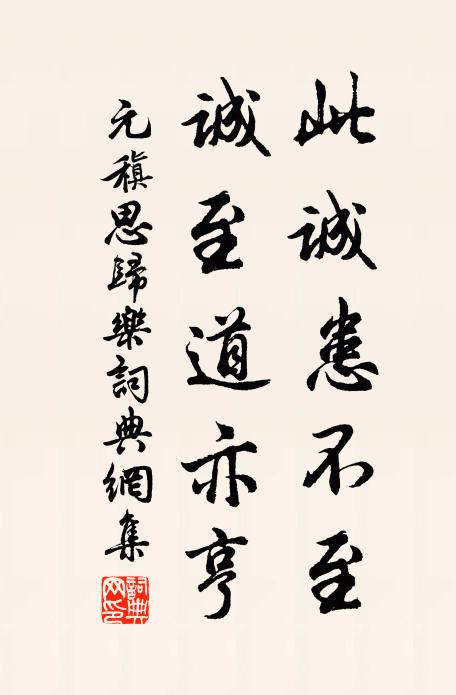 此誠患不至
誠至道亦亨
元稹思歸樂詞典網集
詞典網印